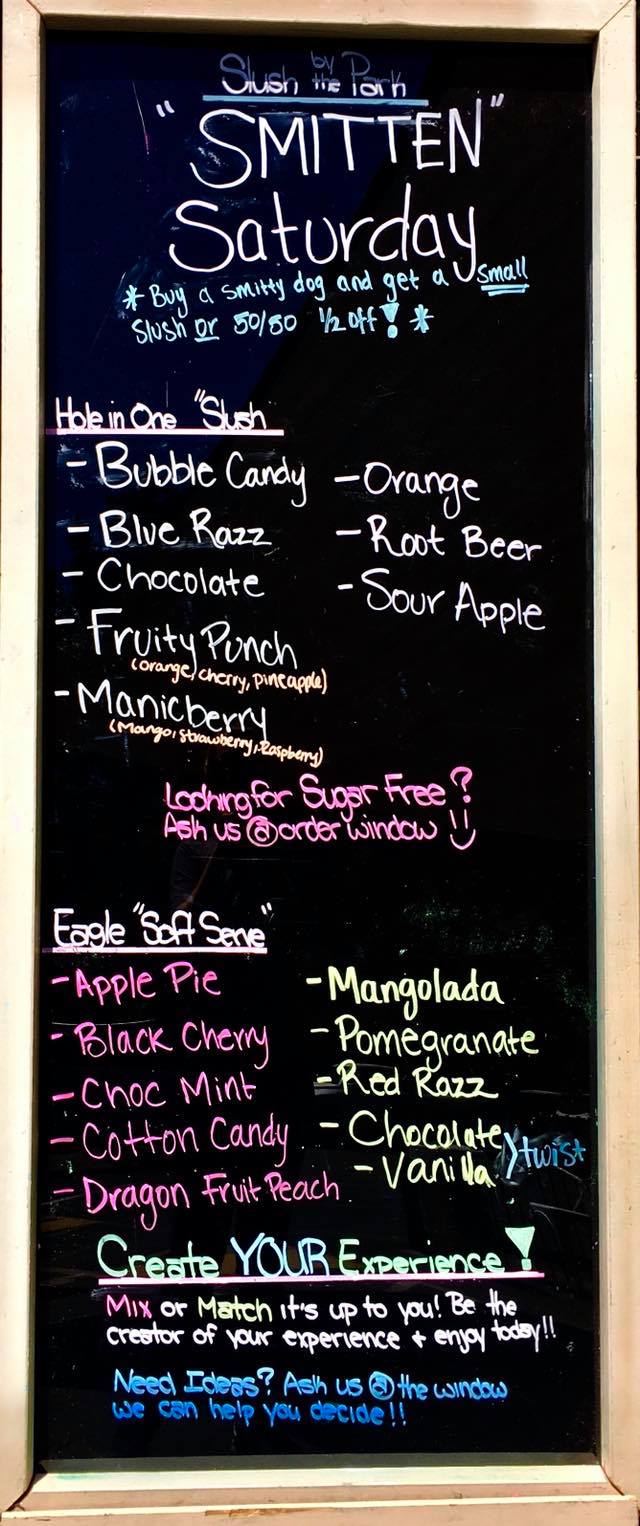 Slush by the Park
"SMITTEN"
Saturday
* Buy a smitty dog and get a small
Slush or 50/50 1/2 off! *
Hole in One "Slush
- Bubble Candy
- Blue Razz
- Chocolate
- Fruity Punch
(orange, cherry, pineapple)
- Manicberry
(Mango, strawberry, Raspberry)
- Orange
- Root Beer
- Sour Apple
Looking for Sugar Free?
Ask us @ order window !!
Eagle "Soft Serve"
- Apple Pie
- Black Cherry
- Choc Mint
- Cotton Candy
- Dragon Fruit Peach
- Mangolada
- Pomegranate
- Red Razz
- Chocolate
- Vanilla
} twist
Create YOUR Experience!
Mix or Match it's up to you! Be the
creator of your experience + enjoy today!!
Need Ideas? Ask us @ the window
we can help you decide!!